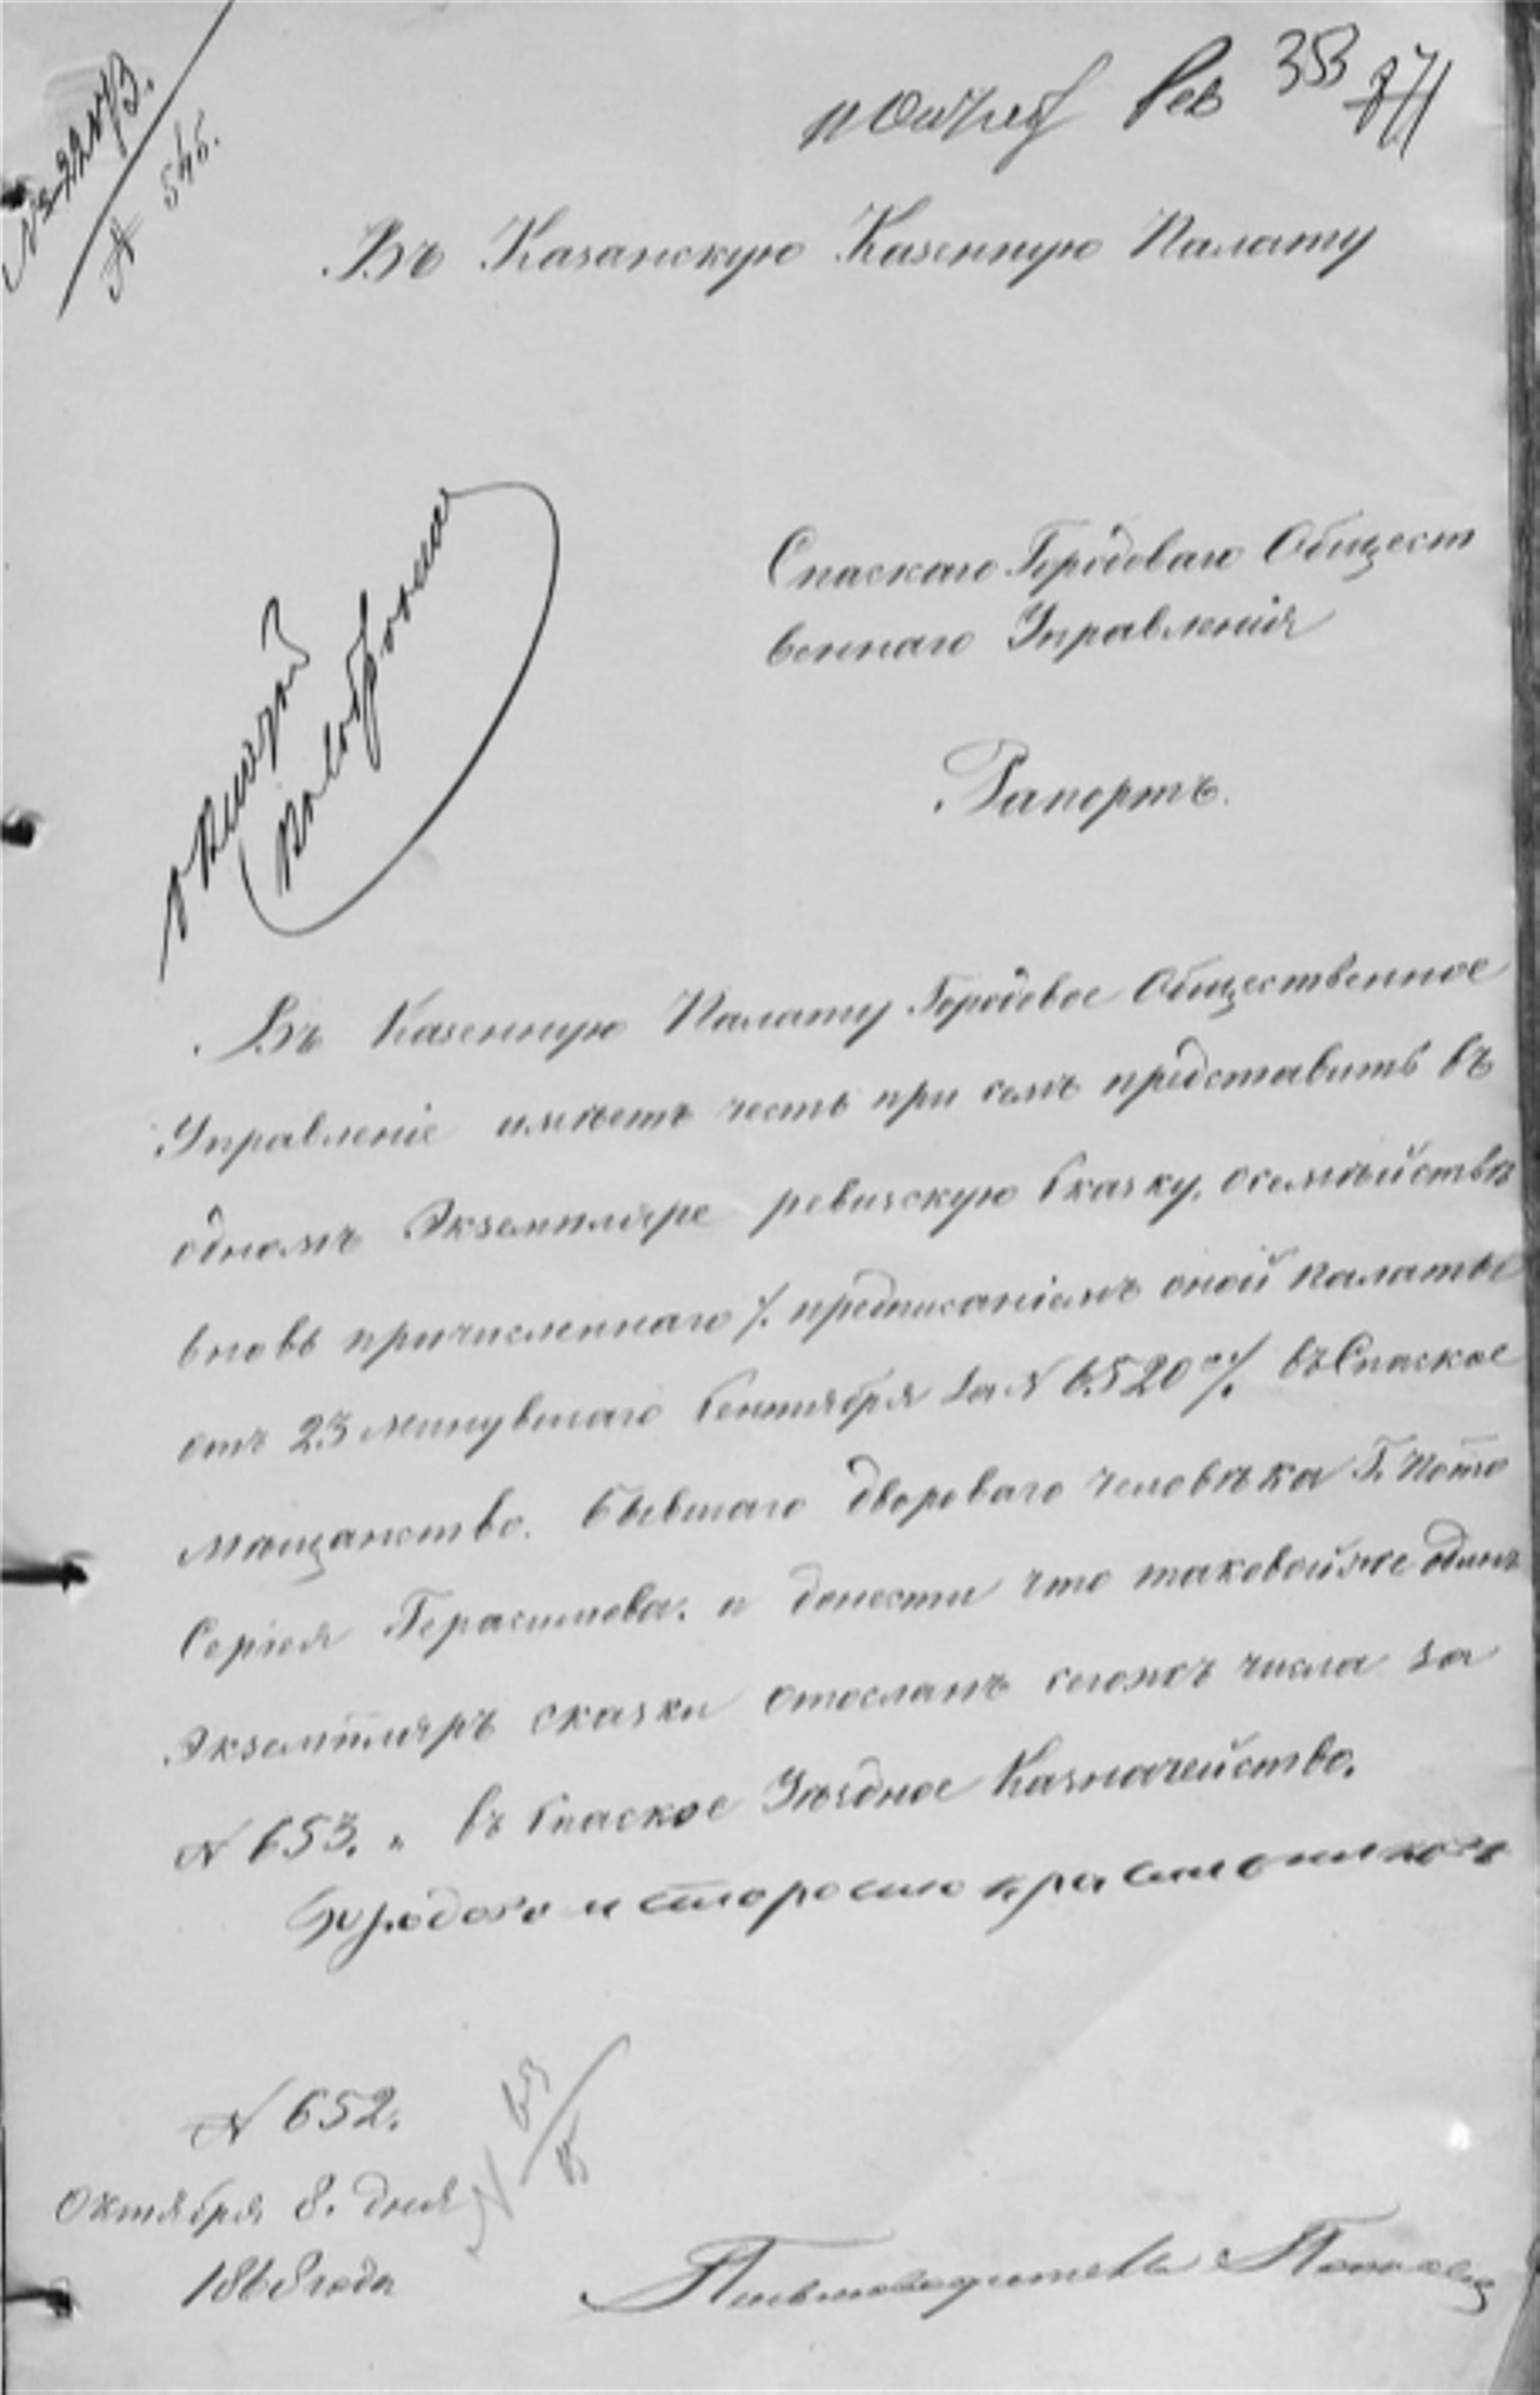 № 22873.
№ 545.
Рев 353
Въ Казанскую Казенную Палату
Спаскаго Городоваго Общест
веннаго Управленія
Рапортъ.
Въ Казенную Палату Городовое Общественное
Управленіе имѣетъ честь при семъ представить въ
одномъ Экземпляре ревизскую сказку, о семѣйствѣ
вновь причисленнаго ./. предписаніемъ оной палаты
отъ 23 минувшаго Сентября за № 6520 ./. въ Спаское
мѣщанство. бывшаго двороваго человѣка Г.
Сергея Герасимова. и донести что таковой же одинъ
Экземпляръ сказки отосланъ сегожъ числа за
№ 653. „ въ Спаское Уѣздное Казначейство.
староста
№ 652.
Октября 8. дня
1868 года
Письмоводитель